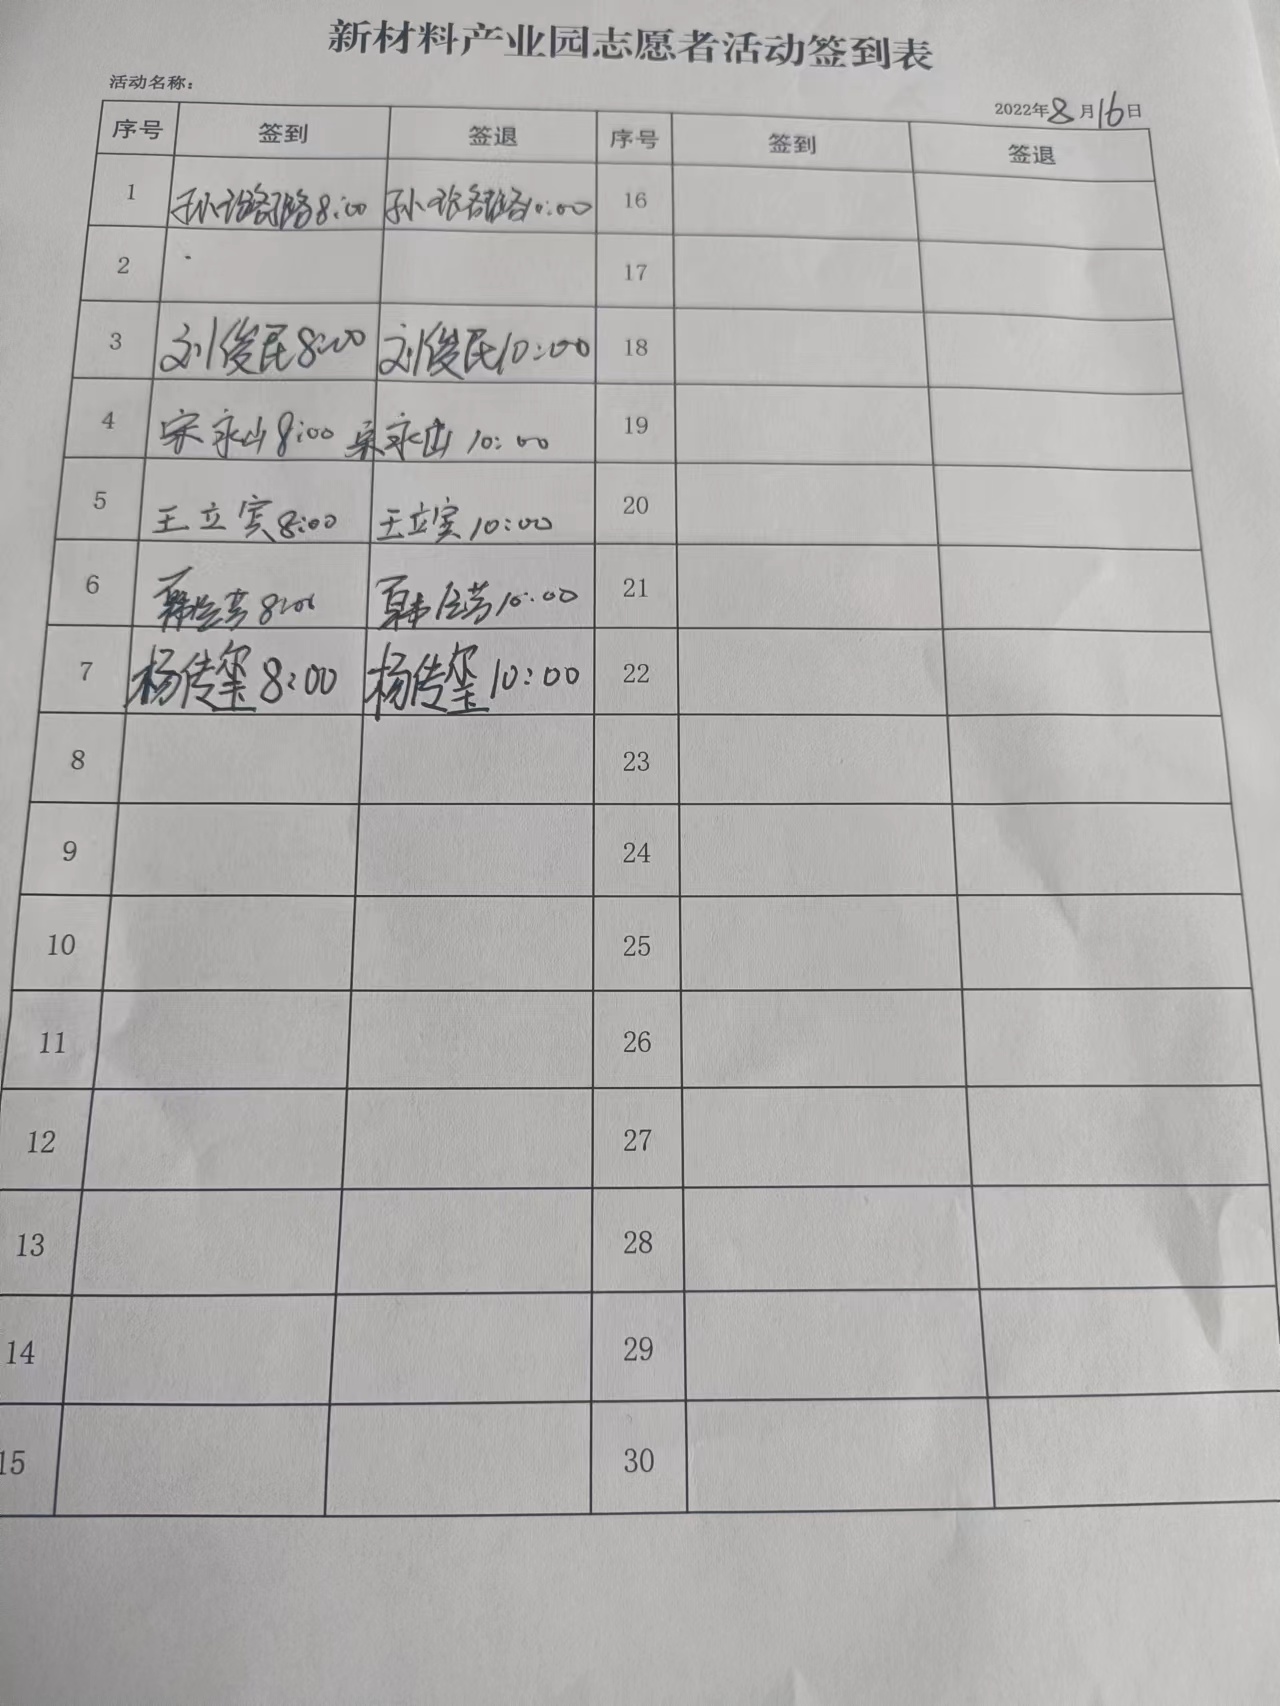 新材料产业园志愿者活动签到表
活动名称:
2022年8月16日
序号 签到 签退 序号 签到 签退
1 孙 8:00 孙 10:00 16
2 17
3 刘俊民8:00 刘俊民10:00 18
4 宋永山8:00 宋永山 10:00 19
5 王立宾8:00 王立宾10:00 20
6 8:00 10:00 21
7 杨传玺8:00 杨传玺10:00 22
8 23
9 24
10 25
11 26
12 27
13 28
14 29
15 30